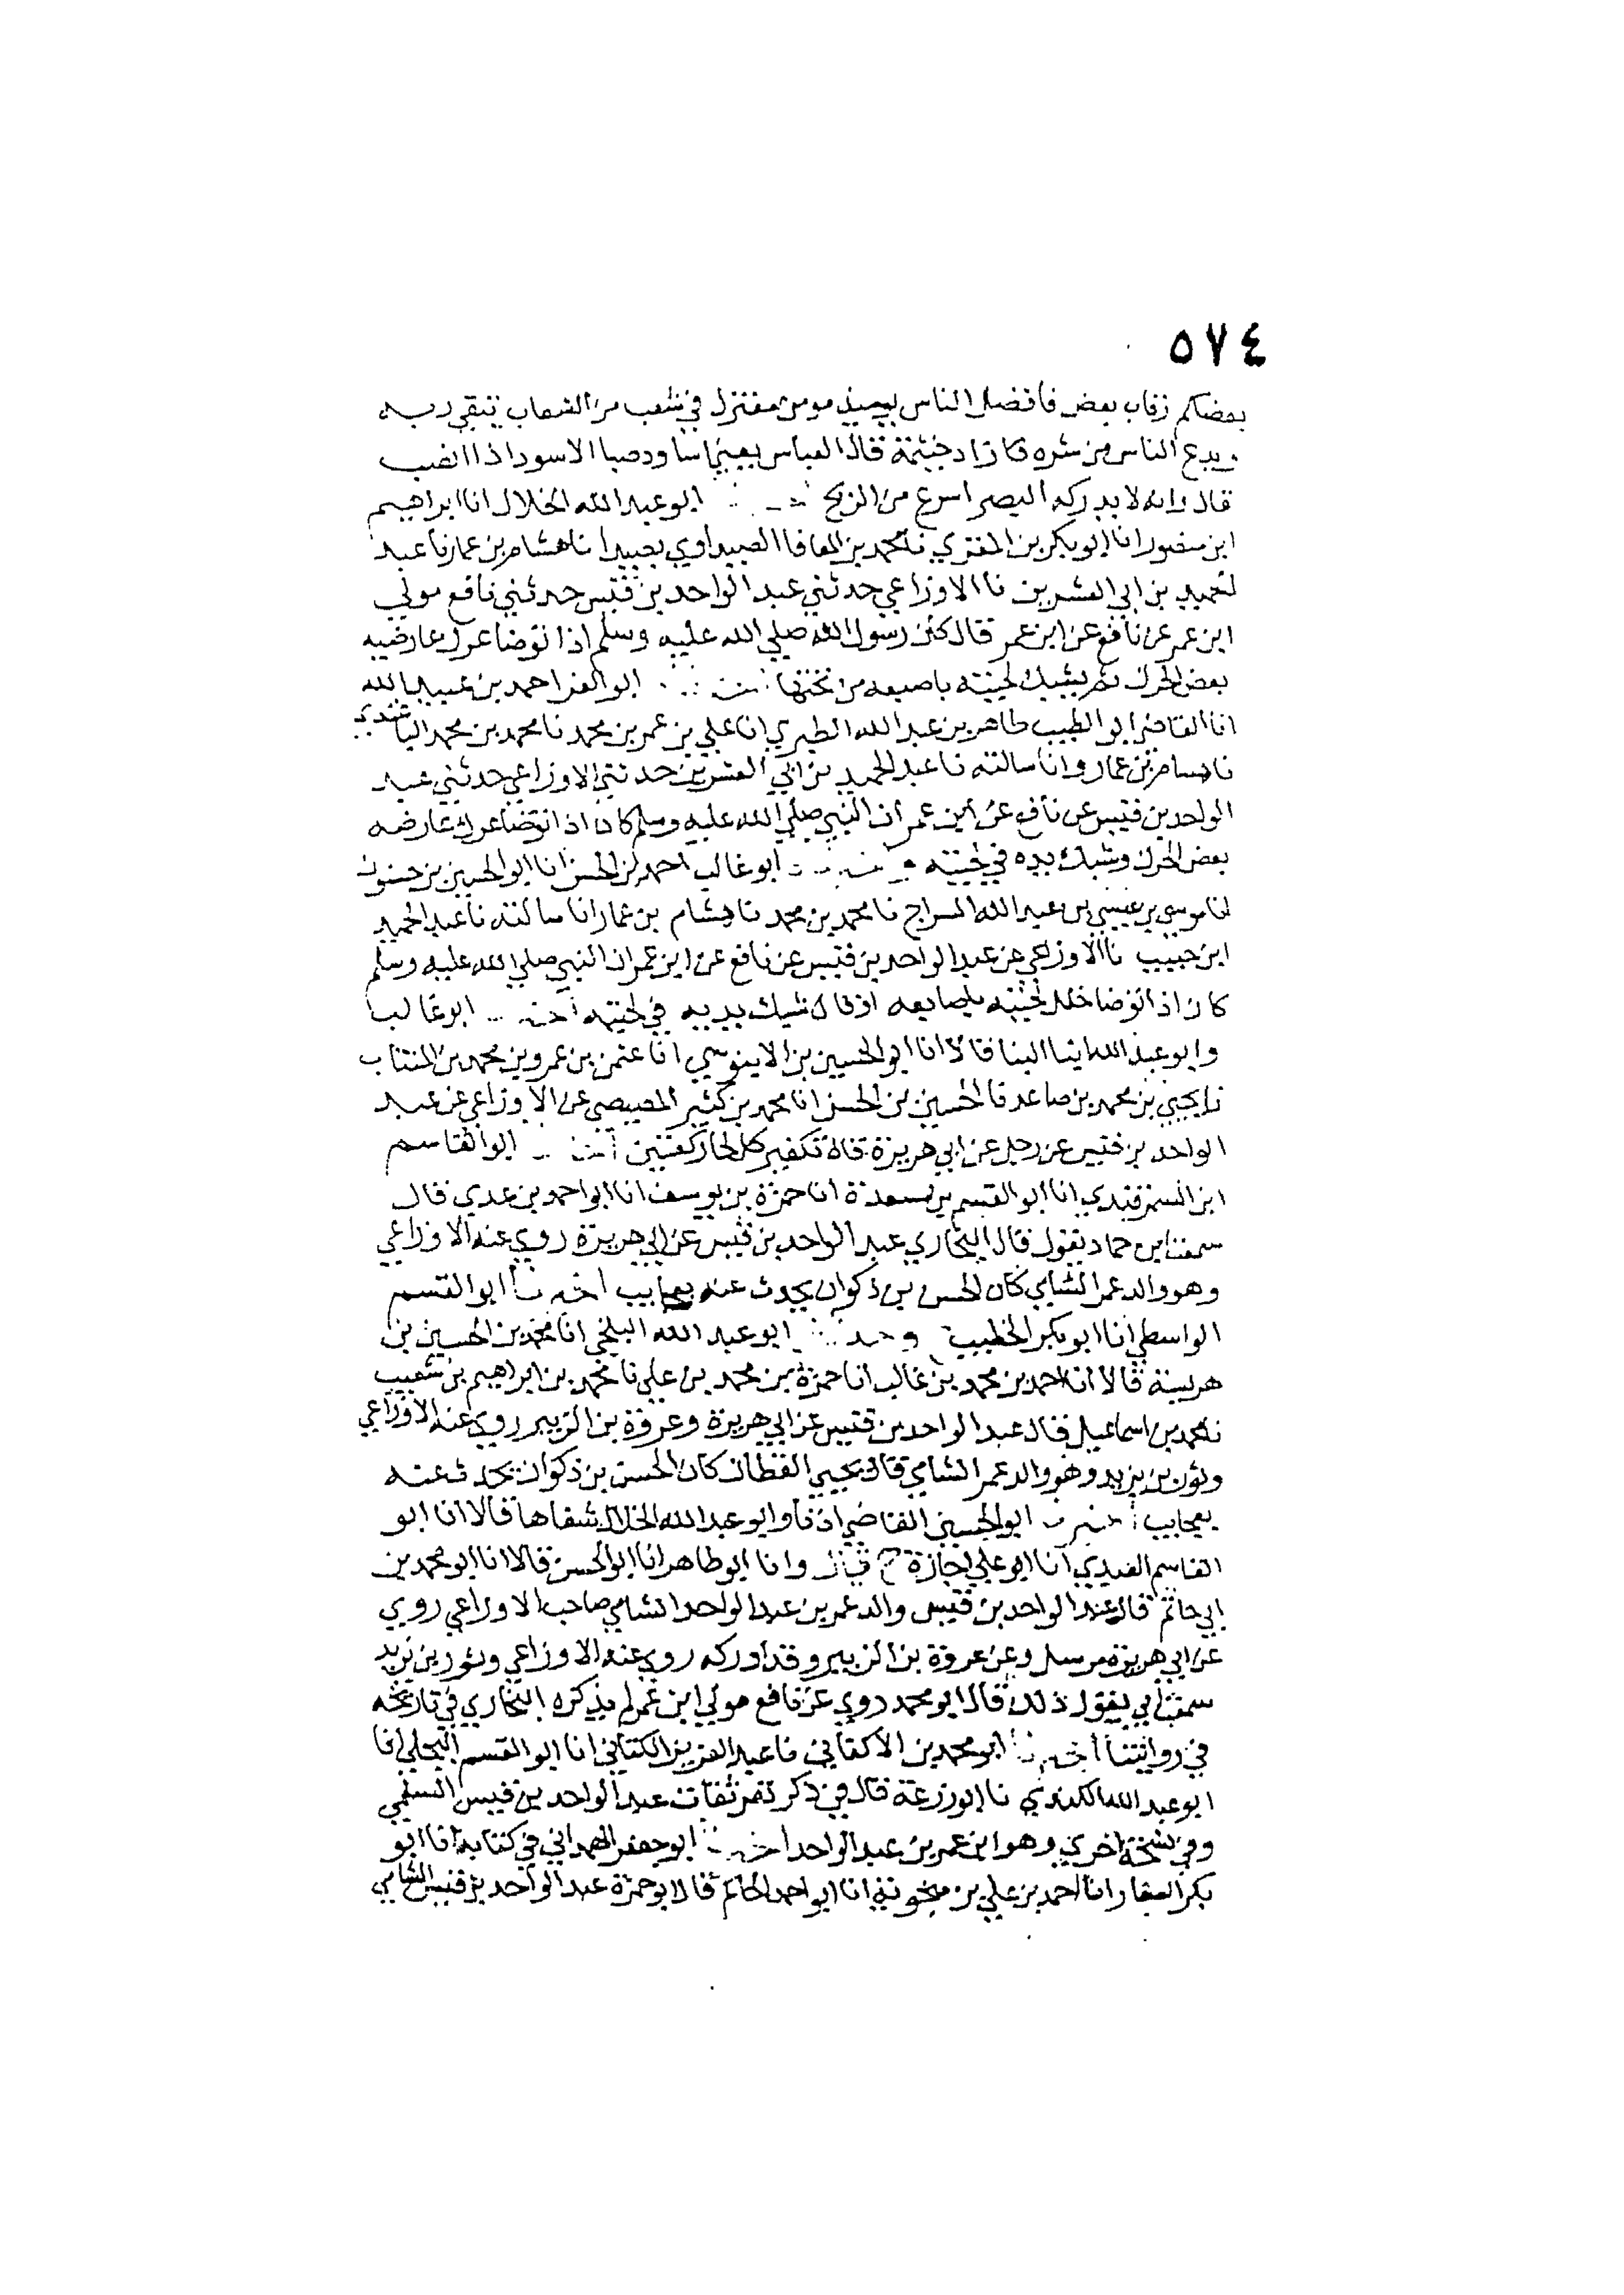 ٥٧٤
بعضكم رقاب بعض فافضل الناس يوميذ مومن معتزل في شعب من الشعاب يتقي ربه
ويدع الناس من شره زاد خيثمة قال العباس يعني اساودصبا الاسود اذا انصب
قال وانه لا يدركه البصر اسرع من الريح ابو عبد الله الخلال انا ابراهيم
ابن منصور انا ابو بكر بن المقري نا محمد بن المعافا الصيداوي بصيدا نا هشام بن عمار نا عبد
لحميد بن ابي العشرين نا الاوزاعي حدثني عبد الواحد بن قيس حدثني نافع مولي
ابن عمر عن نافع عن ابن عمر قال كان رسول الله صلي الله عليه وسلم اذا توضا عرك عارضيه
بعض العرك ثم يشبك لحيته باصبعه من تحتها ابو العز احمد بن عبيد الله
انا القاضي ابو الطيب طاهر بن عبد الله الطبري انا علي بن عمر بن محمد نا محمد بن محمد الباغندي
نا هشام بن عمار وانا سالته نا عبد الحميد بن ابي العشرين حدثني الاوزاعي حدثني عبد
الواحد بن قيس عن نافع عن ابن عمر ان النبي صلي الله عليه وسلم كان اذا توضا عرك عارضه
بعض العرك وشبك يده في لحيته ابو غالب احمد بن الحسن انا ابو الحسين بن حسنون
انا موسي بن عيسي بن عبد الله السراج نا محمد بن محمد نا هشام بن عمار انا سالته نا عبد الحميد
ابن حبيب نا الاوزاعي عن عبد الواحد بن قيس عن نافع عن ابن عمر ان النبي صلي الله عليه وسلم
كان اذا توضا خلل لحيته باصابعه او قال شبك بيديه في لحيته ابو غالب
وابو عبد الله ابنا البنا قالا انا ابو الحسين بن الابنوسي انا عثمن بن عمرو بن محمد بن المنتاب
نا يحيي بن محمد بن صاعد نا الحسين بن الحسن انا محمد بن كثير المصيصي عن الاوزاعي عن عبد
الواحد بن قيس عن رجل عن ابي هريرة قال تكفير كل لحا ركعتين ابو القاسم
ابن السمرقندي انا ابو القسم بن مسعدة انا حمزة بن يوسف انا ابو احمد بن عدي قال
سمعت ابن حماد يقول قال البخاري عبد الواحد بن قيس عن ابي هريرة روي عنه الاوزاعي
وهو والد عمر الشامي كان الحسن بن ذكوان يحدث عنه بعجايب ابو القسم
الواسطي انا ابو بكر الخطيب ابو عبد الله البلخي انا محمد بن الحسين بن
هريسة قالا انا احمد بن محمد بن غالب انا حمزة بن محمد بن علي نا محمد بن ابراهيم بن شعيب
نا محمد بن اسماعيل قال عبد الواحد بن قيس عن ابي هريرة وعروة بن الزبير روي عنه الاوزاعي
وثور بن يزيد وهو والد عمر الشامي قال يحيي القطان كان الحسن بن ذكوان يحدث عنه
بعجايب ابو الحسين القاضي اذنا وابو عبد الله الخلال شفاها قالا انا ابو
القاسم العبدي انا ابو علي اجازة ح قال وانا ابو طاهر انا ابو الحسن قالا انا ابو محمد بن
ابي حاتم قال عبد الواحد بن قيس والد عمر بن عبد الواحد الشامي صاحب الاوزاعي روي
عن ابي هريرة مرسل وعن عروة بن الزبير وقد ادركه روي عنه الاوزاعي وثور بن يزيد
سمعت ابي يقول ذلك قال ابو محمد روي عن نافع مولي ابن عمر لم يذكره البخاري في تاريخه
في روايتنا ابو محمد بن الاكفاني نا عبد العزيز الكتاني انا ابو القسم البجلي انا
ابو عبد الله الكندي نا ابو زرعة قال في ذكر نفر ثقات عبد الواحد بن قيس السلمي
وفي نسخة اخري وهو ابن عمر بن عبد الواحد ابو جعفر الهمداني في كتابه انا ابو
بكر الصفار انا احمد بن علي بن منجويه انا ابو احمد الحاكم قال ابو حمزة عبد الواحد بن قيس الشامي